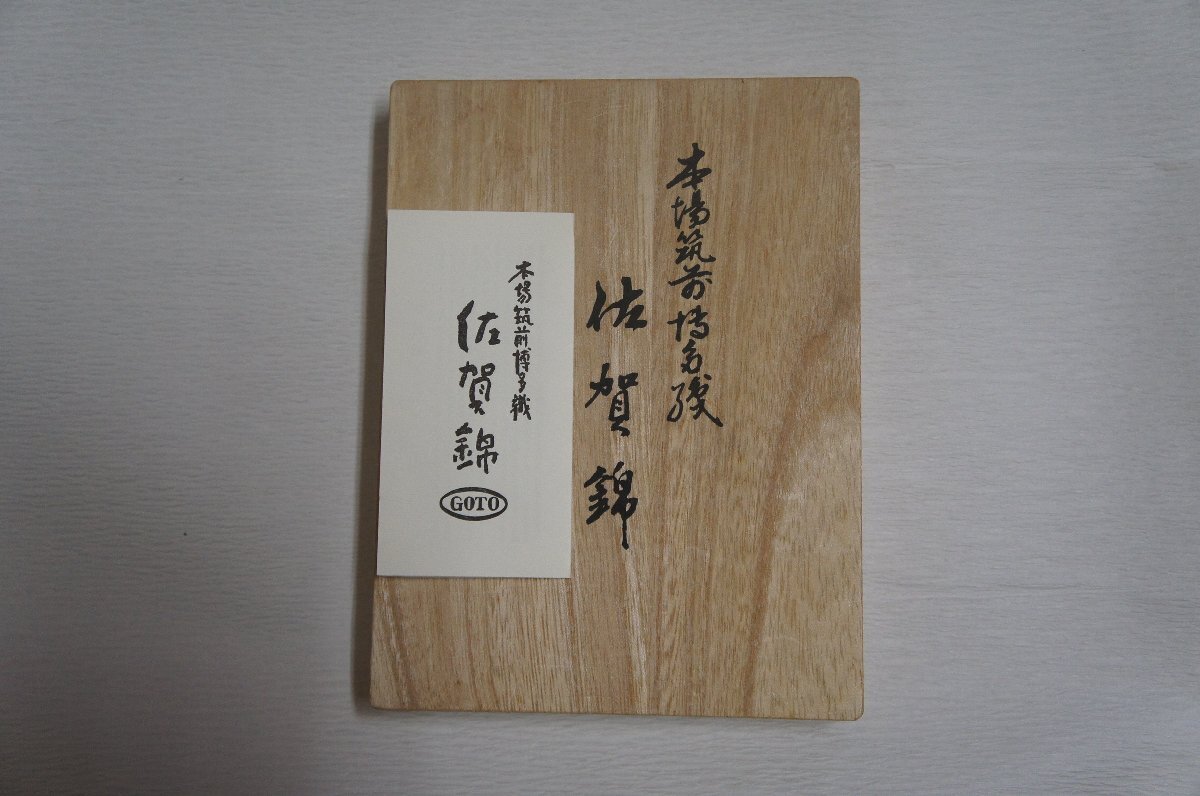 本場筑前博多織
佐賀錦
本場筑前博多織
佐賀錦
GOTO